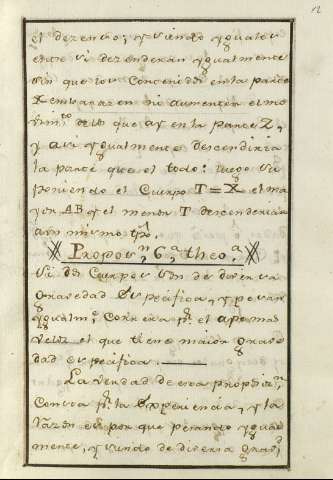 12
el dezenso; y siendo yguales
entre si dezenderan ygualmente
sin que los contenidos en la parte
X embarazen ni aumenten el mo
vim.to de lo que ay en la parte Z,
y asi ygualmente descendiria
la parte que el todo: luego su
poniendo el Cuerpo T = X el ma
yor AB y el menor T descenderian
a un mismo tpo.
Propos.n 6.a theo.a
Si dos Cuerpos son de diversa
Gravedad Especifica, y pesan
ygualm.e Correra el
veloz el que tiene maior Grave
dad especifica.
La verdad de esta propósiz.n
Consta p.r la Experiencia, y la
razon es por que pesando ygual
mente, y siendo de diversa grav.d